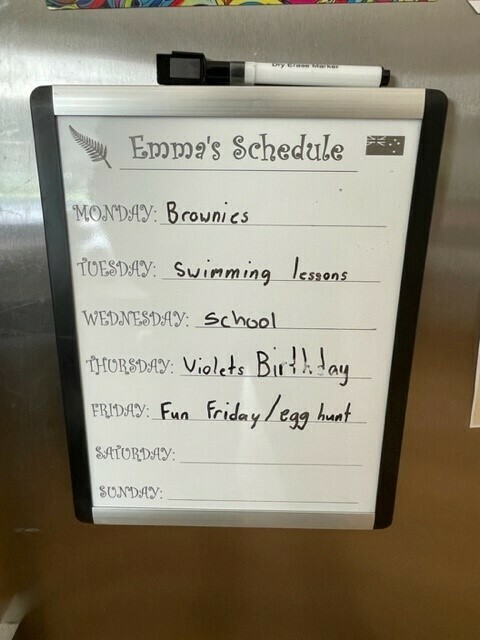 Dry Erase Marker
Emma's Schedule
MONDAY: Brownies
TUESDAY: Swimming lessons
WEDNESDAY: School
THURSDAY: Violets Birthday
FRIDAY: Fun Friday/egg hunt
SATURDAY:
SUNDAY: